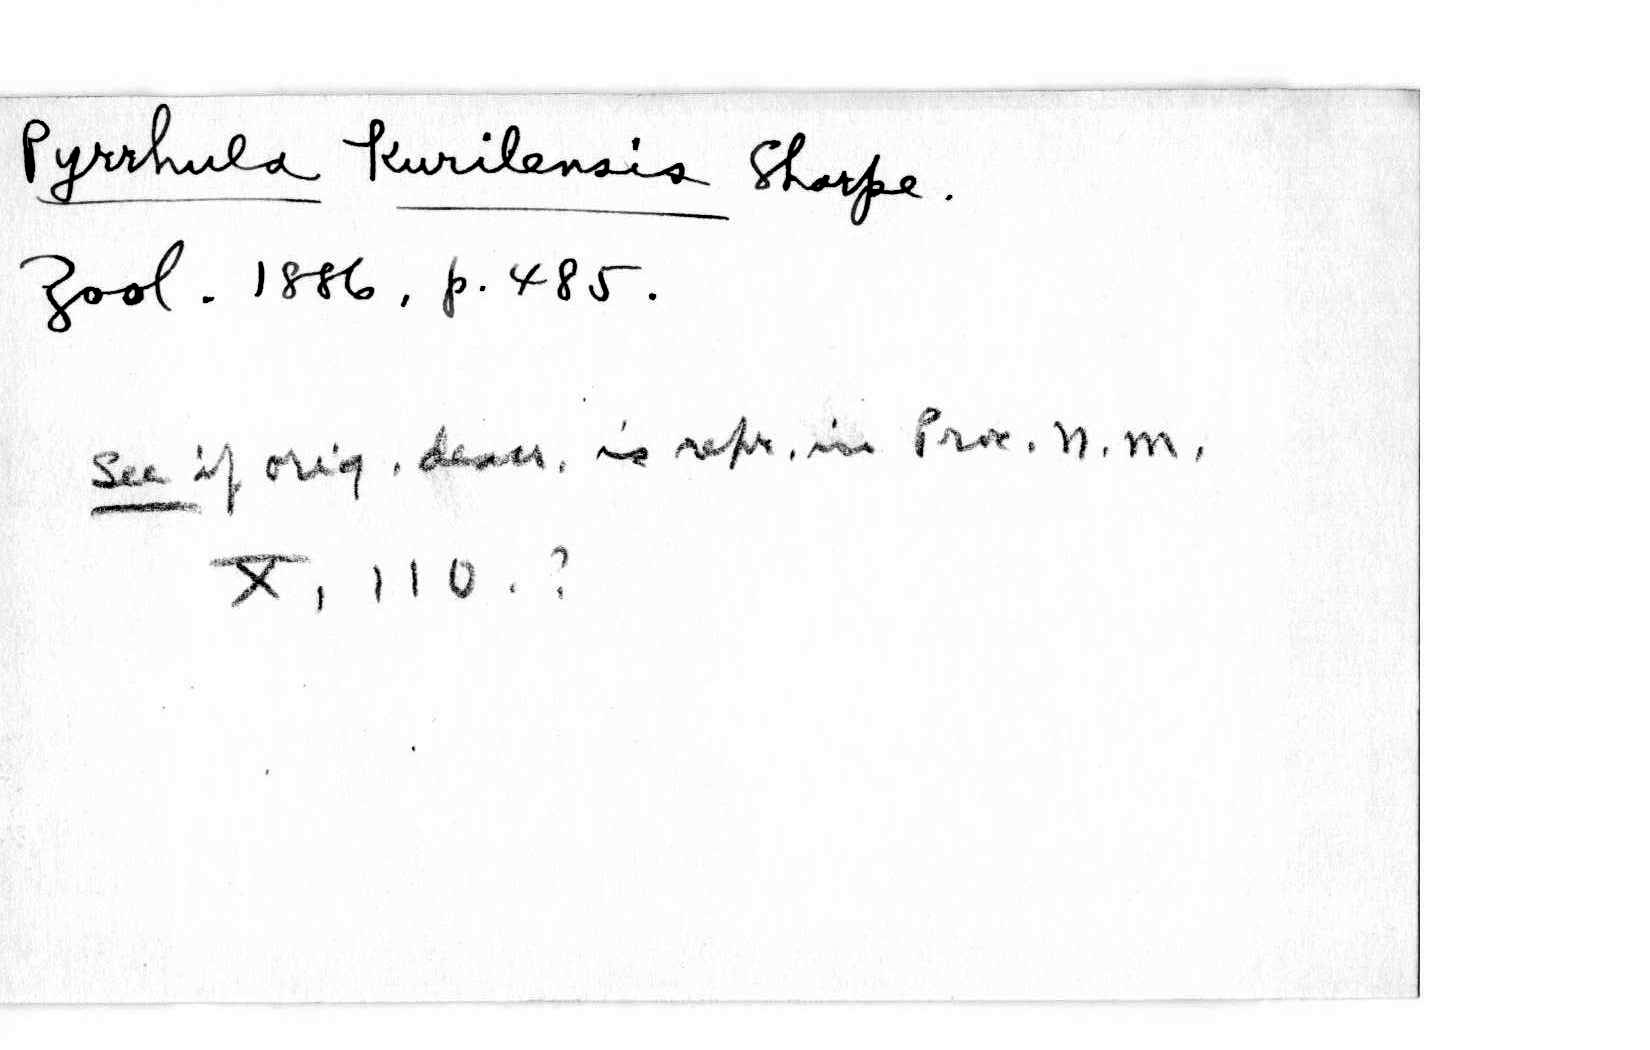 Pyrrhula Kurilensis Sharpe.
Zool. 1886, p. 485.
See if orig. descr. is repr. in Proc. N. M.
X, 110. ?